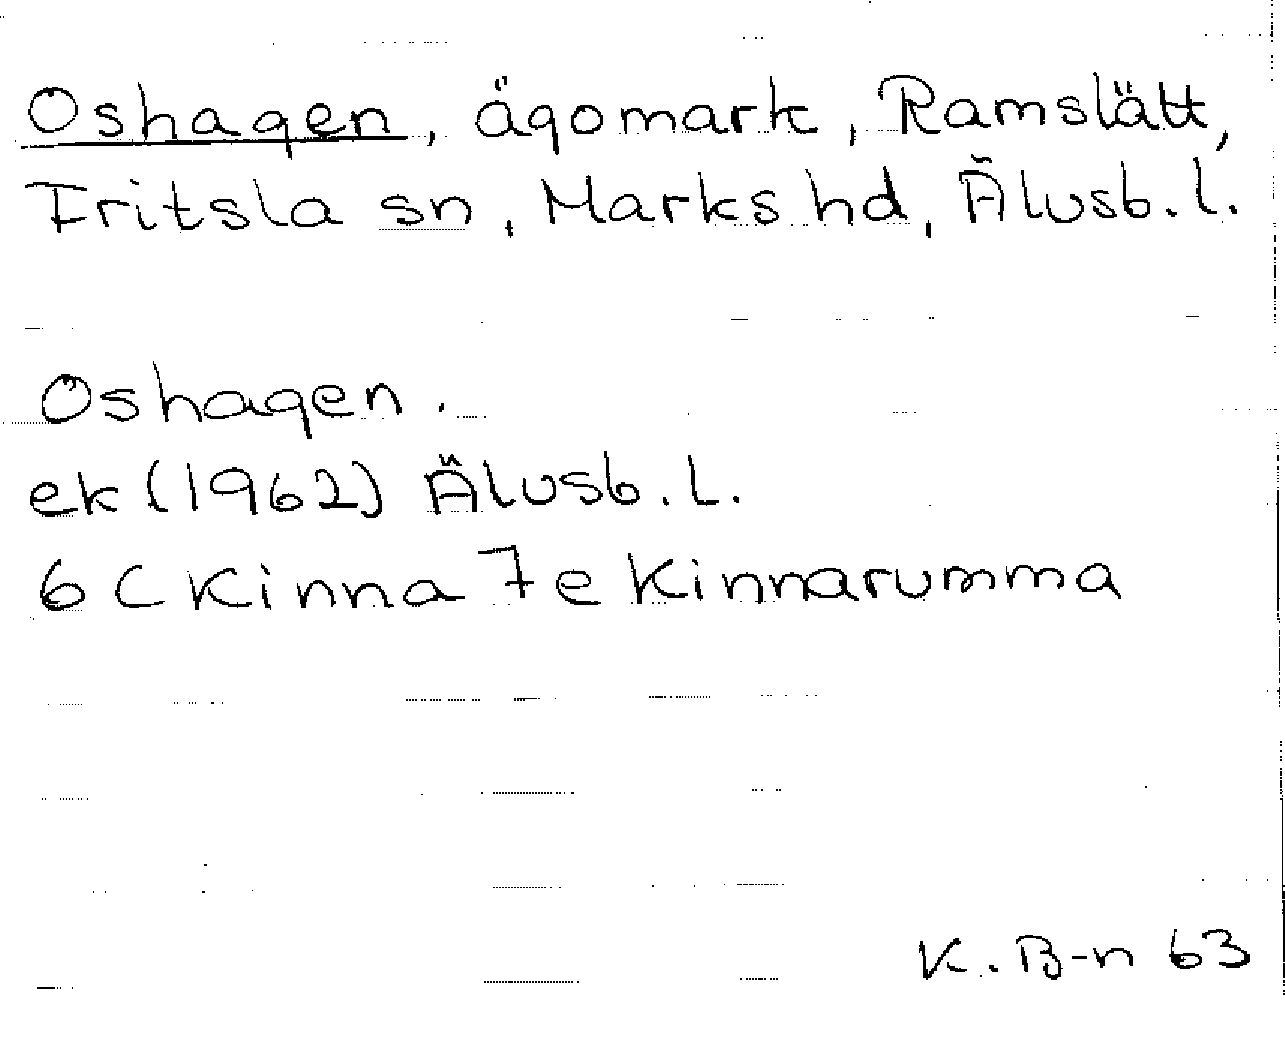 Oshagen, ägomark, Ramslätt,
Fritsla sn, Marks hd, Älvsb. l.
Oshagen.
ek (1962) Älvsb. l.
6 C Kinna 7 e Kinnarumma
K. B-n 63